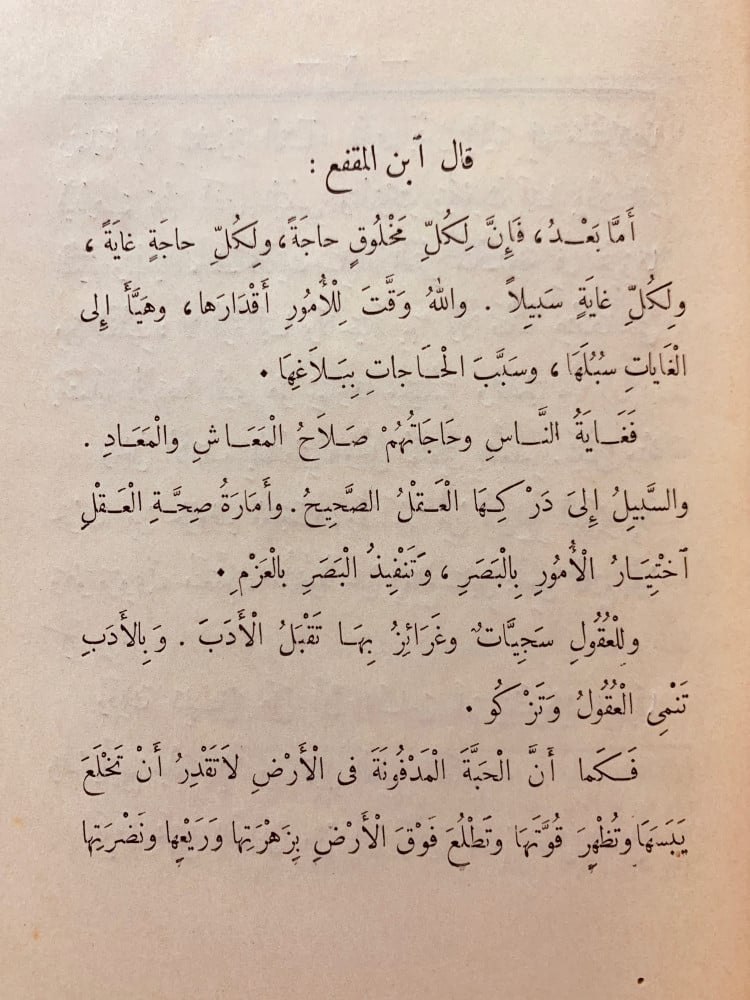 قال ٱبن المقفع :
أَمَّا بَعْـدُ، فَإِنَّ لِكُلِّ مَخْلُوقٍ حاجَةً، ولِكُلِّ حاجَةٍ غايَةً ،
ولِكُلِّ غايَةٍ سَبِيلاً . واللهُ وَقَّتَ لِلْأُمُورِ أَقْدَارَها، وهَيَّأَ إلى
الْغَاياتِ سُبُلَهَا ، وسَبَّبَ الْحَـاجاتِ بِبَـلَاغِهَا .
فَغَـايَةُ النَّـاسِ وحَاجَاتُهُمْ صَـلَاحُ الْمَعَـاشِ والْمَعَـادِ .
والسَّبِيلُ إِلىَ دَرْكِـهَا الْعَـقْلُ الصَّحِيحُ . وأَمَارَةُ صِحَّـةِ الْعَـقْلِ
ٱخْتِيَـارُ الْأُمُورِ بِالْبَصَرِ ، وَتَنْفِيذُ الْبَصَرِ بالْعَزْمِ .
ولِلْعُقُولِ سَجِيَّاتٌ وغَرَائِزُ بِهَـا تَقْبَلُ الْأَدَبَ . وَبِالْأَدَبِ
تَنْمِى الْعُقُولُ وَتَزْكُو .
فَـكَما أَنَّ الْحَبَّةَ الْمَدْفُونَةَ فى الْأَرْضِ لاَ تَقْدِرُ أَنْ تَخْلَعَ
يَبَسَهَا وتُظْهِرَ قُوَّتَهَا وتَطْلُعَ فَوْقَ الْأَرْضِ بِزَهْرَتِها وَرَيْعِها ونَضْرَتِها